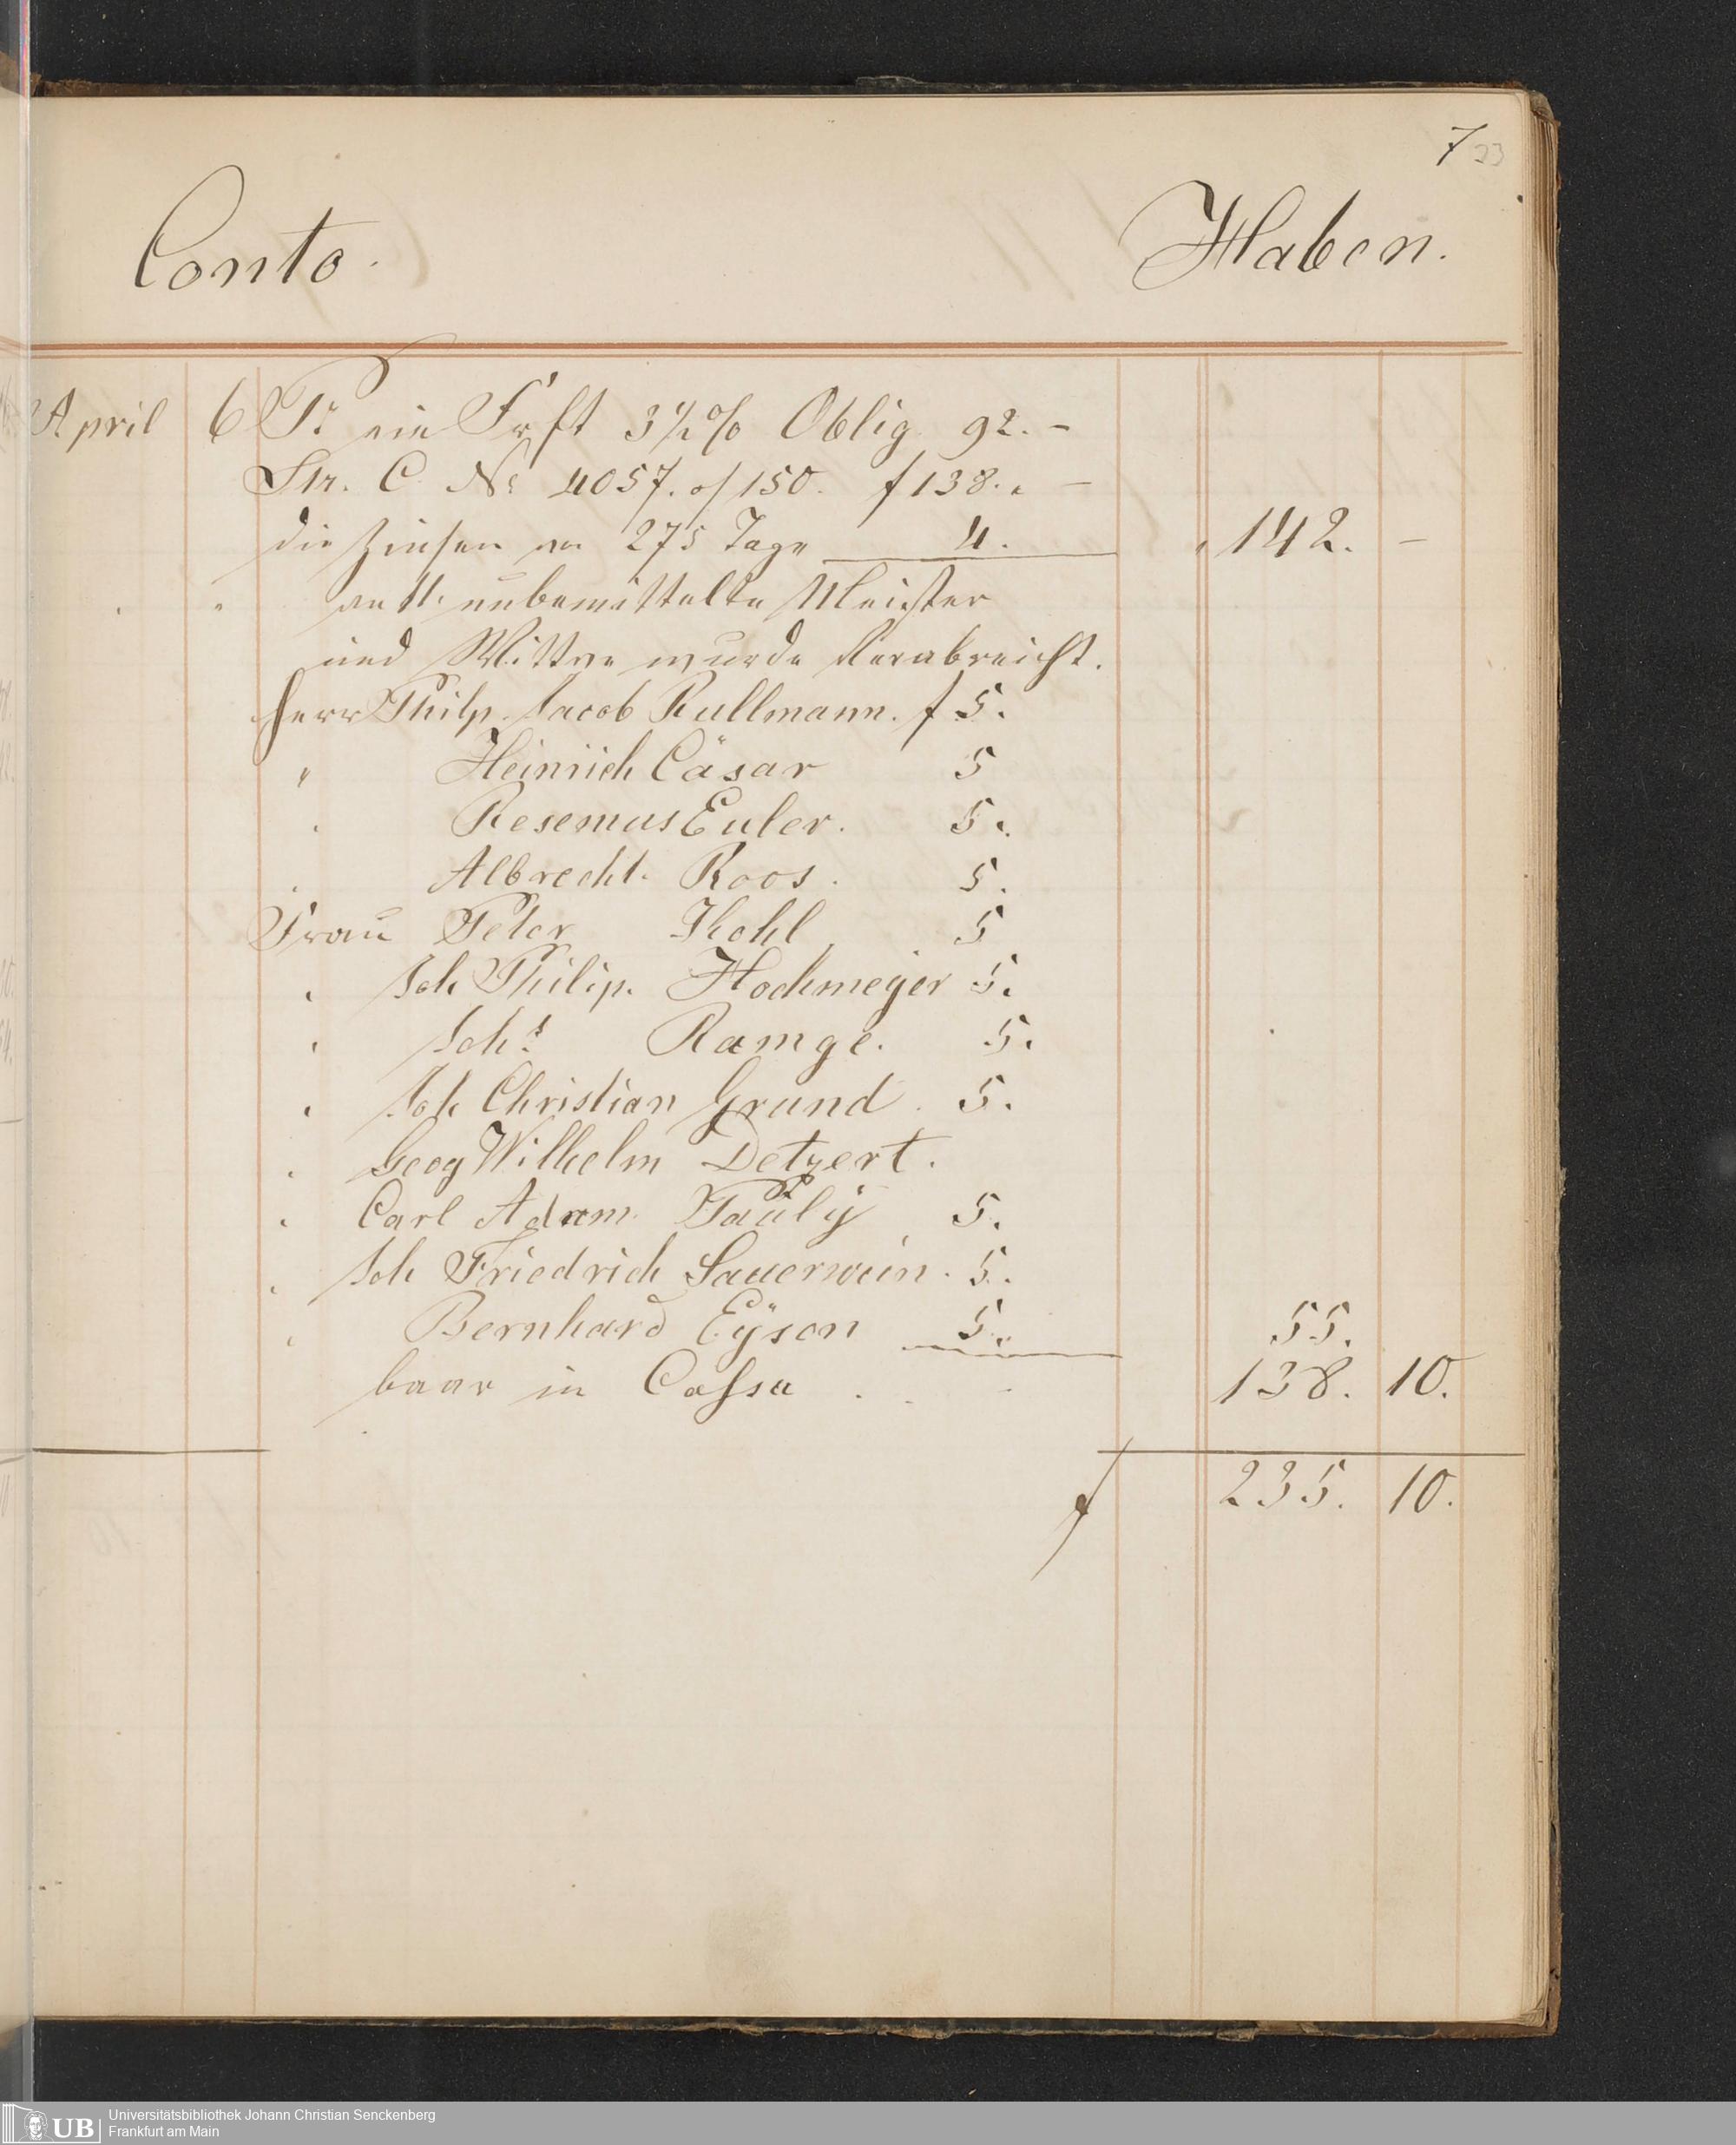 7 23
Conto. Haben.
April 6 Pr ein Frft 3½% Oblig. 92. -
Litr. C. No 4057. of 150. f 138. -
die Zinsen von 275 Tage 4. 142. -
" an 11. unbemittelte Meister
und Wittwe wurde verabreicht.
Herr Philp. Jacob Rullmann. f 5.
" Heinrich Cäsar 5
" Resemus Euler. 5.
" Albrecht Roos. 5.
Frau Peter Kohl 5
" Joh Philip. Hochmeyer 5.
" Johs Ramge. 5.
" Joh Christian Grund. 5.
" Geog Wilhelm Detzert.
" Carl Adam Pauly 5.
" Joh Friedrich Sauerwein. 5.
" Bernhard Eÿson 5. 55.
baar in Cassa . . - 138. 10.
f 235. 10.
UB Universitätsbibliothek Johann Christian Senckenberg
Frankfurt am Main